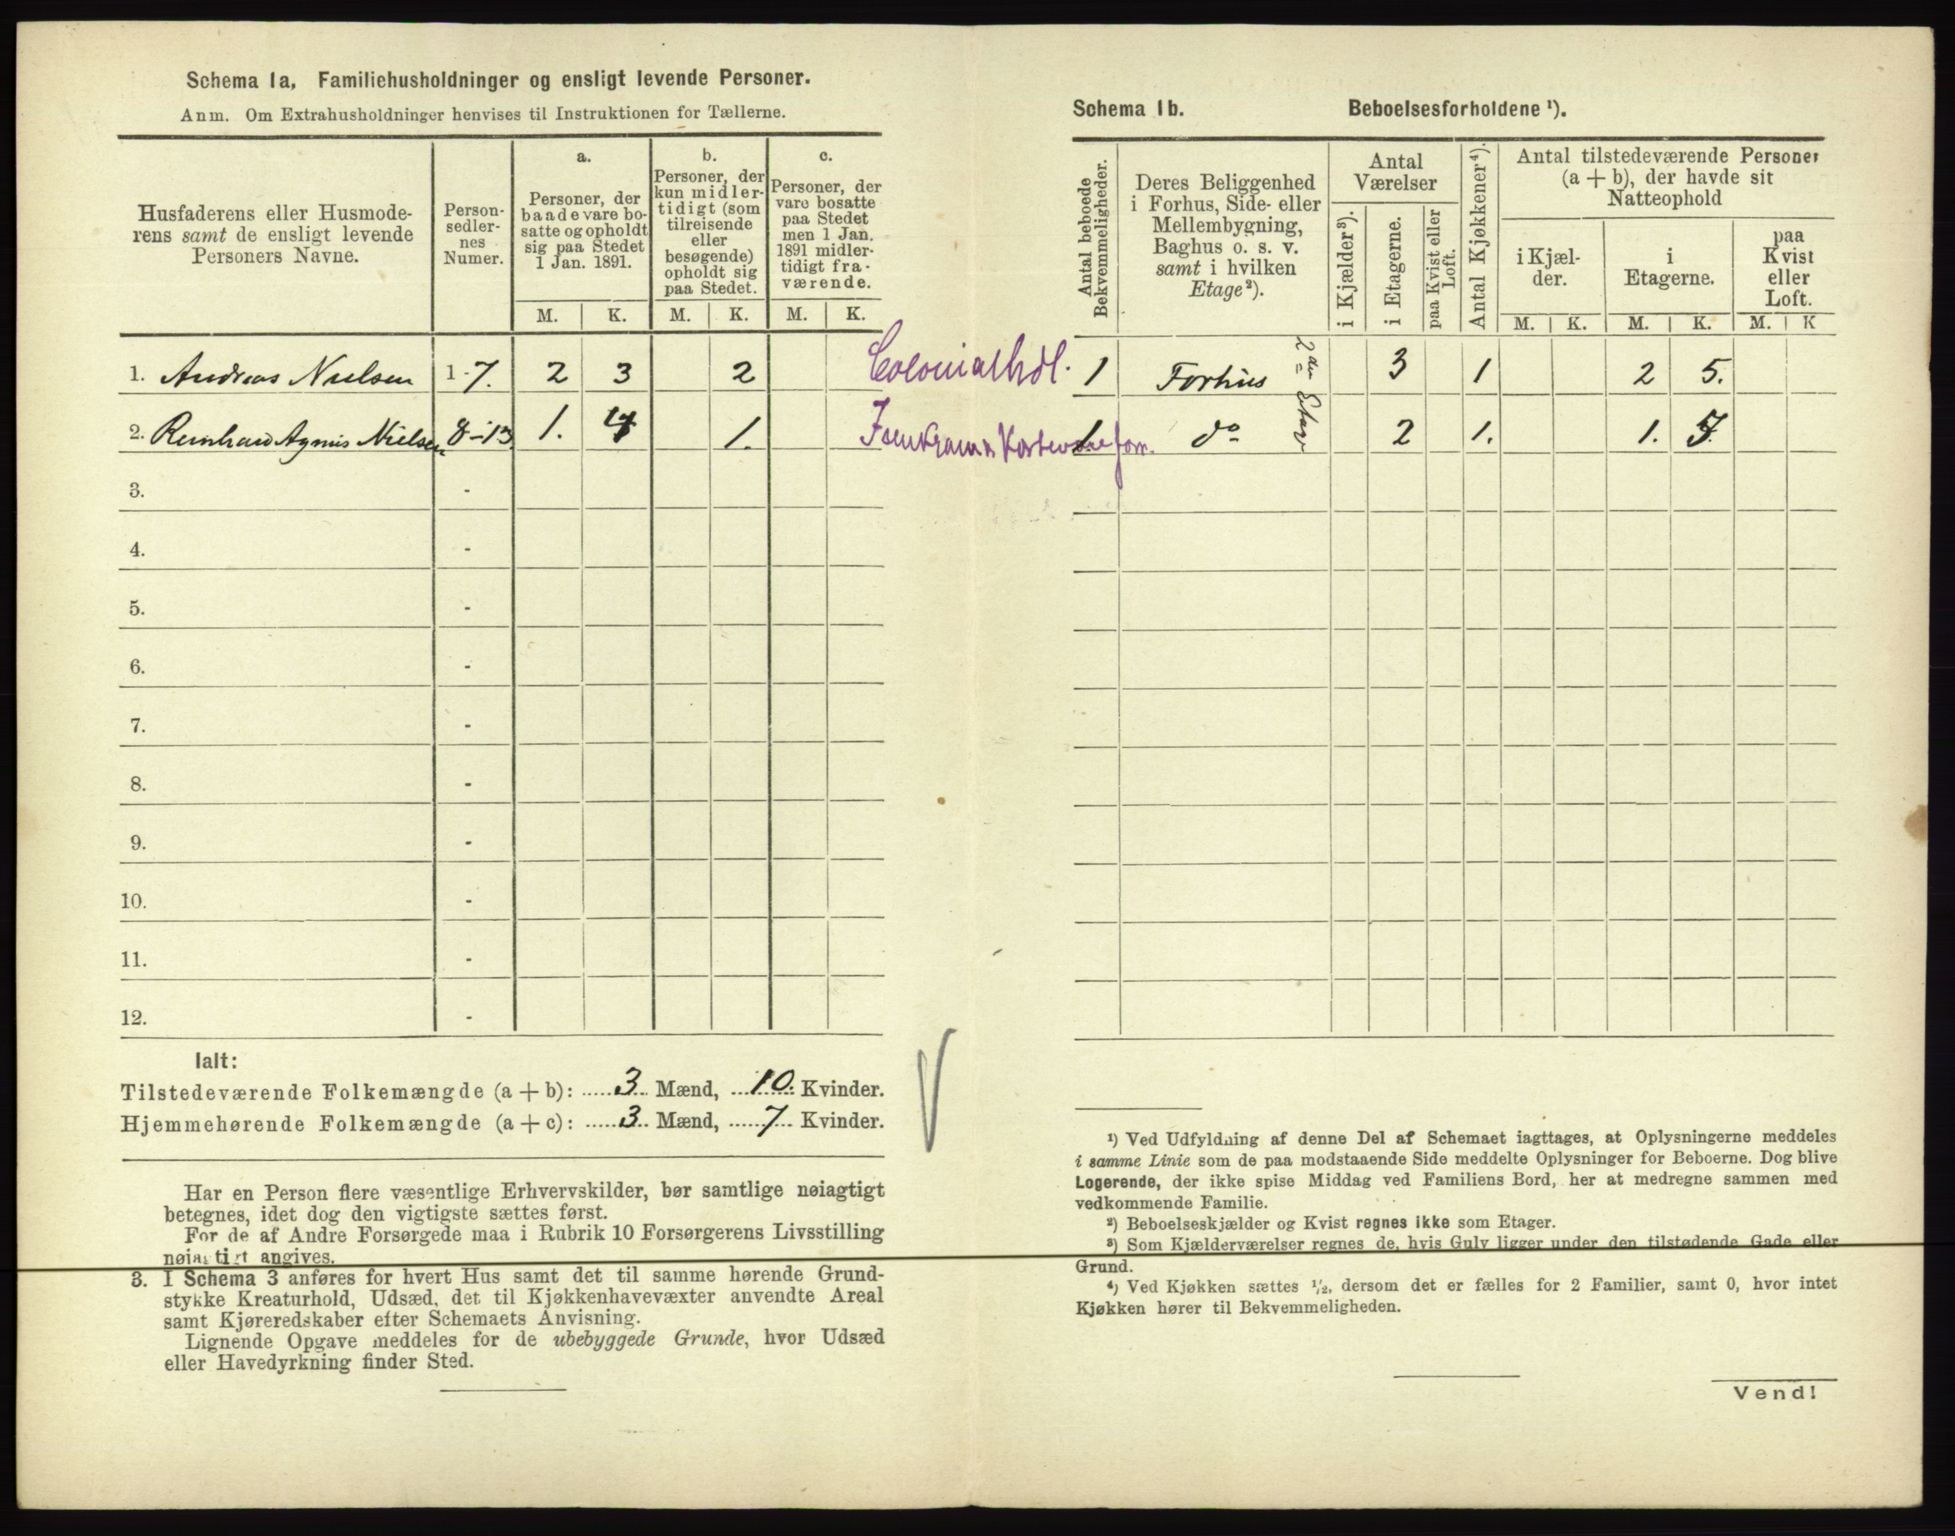 Schema 1a, Familiehusholdninger og ensligt levende Personer.
Anm. Om Extrahusholdninger henvises til Instruktionen for Tællerne.
Husfaderens eller Husmode-
rens samt de ensligt levende
Personers Navne.
Person-
sedler-
nes
Numer.
a.
Personer, der
baade vare bo-
satte og opholdt
sig paa Stedet
1 Jan. 1891.
b.
Personer, der
kun midler-
tidigt (som
tilreisende
eller
besøgende)
opholdt sig
paa Stedet.
c.
Personer, der
vare bosatte
paa Stedet
men 1 Jan.
1891 midler-
tidigt fra-
værende.
M. K. M. K. M. K.
1. Andreas Nielsen 1-7. 2 3 2 Colonialhdl.
2. Reinhard Agnus Nielsen 8-13 1. 4 1.
3. -
4. -
5. -
6. -
7. -
8. -
9. -
10. -
11. -
12. -
Ialt:
Tilstedeværende Folkemængde (a + b): 3 Mænd, 10. Kvinder.
Hjemmehørende Folkemængde (a + c): 3 Mænd, 7 Kvinder.
Har en Person flere væsentlige Erhvervskilder, bør samtlige nøiagtigt
betegnes, idet dog den vigtigste sættes først.
For de af Andre Forsørgede maa i Rubrik 10 Forsørgerens Livsstilling
nøiagtigt angives.
3. I Schema 3 anføres for hvert Hus samt det til samme hørende Grund-
stykke Kreaturhold, Udsæd, det til Kjøkkenhavevæxter anvendte Areal
samt Kjøreredskaber efter Schemaets Anvisning.
Lignende Opgave meddeles for de ubebyggede Grunde, hvor Udsæd
eller Havedyrkning finder Sted.
Schema 1b. Beboelsesforholdene ¹).
Antal beboede
Bekvemmeligheder.
Deres Beliggenhed
i Forhus, Side- eller
Mellembygning,
Baghus o. s. v.
samt i hvilken
Etage²).
Antal
Værelser
i Kjælder³).
i Etagerne.
paa Kvist eller
Loft.
Antal Kjøkkener⁴).
Antal tilstedeværende Personer
(a + b), der havde sit
Natteophold
i Kjæl-
der.
i
Etagerne.
paa
Kvist
eller
Loft.
M. K. M. K. M. K
1 Forhus 2den Etage 3 1 2 5.
1. do 2 1. 1. 5
¹) Ved Udfyldning af denne Del af Schemaet iagttages, at Oplysningerne meddeles
i samme Linie som de paa modstaaende Side meddelte Oplysninger for Beboerne. Dog blive
Logerende, der ikke spise Middag ved Familiens Bord, her at medregne sammen med
vedkommende Familie.
²) Beboelseskjælder og Kvist regnes ikke som Etager.
³) Som Kjælderværelser regnes de, hvis Gulv ligger under den tilstødende Gade eller
Grund.
⁴) Ved Kjøkken sættes ¹/₂, dersom det er fælles for 2 Familier, samt 0, hvor intet
Kjøkken hører til Bekvemmeligheden.
Vend!